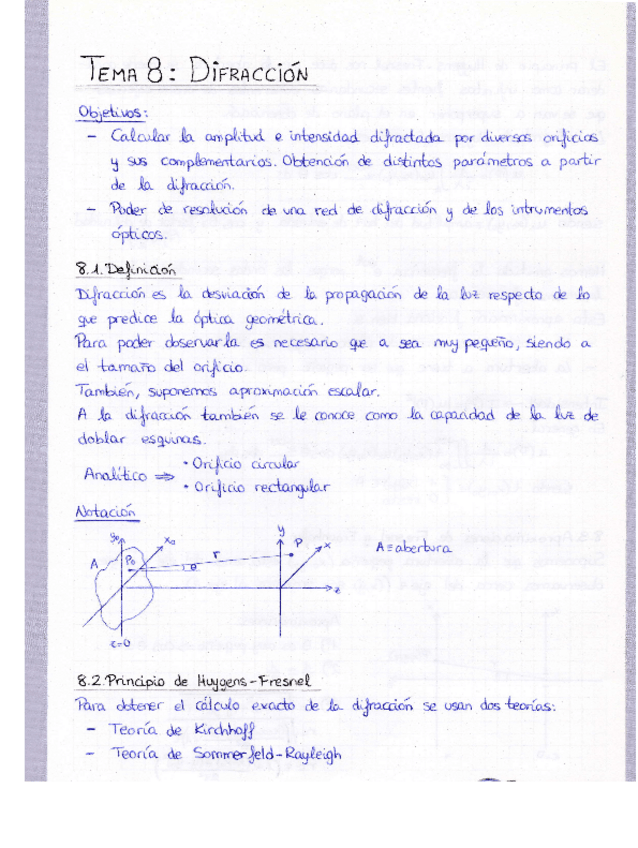 TEMA 8: DIFRACCIÓN
Objetivos:
- Calcular la amplitud e intensidad difractada por diversos orificios
y sus complementarios. Obtención de distintos parámetros a partir
de la difracción.
- Poder de resolución de una red de difracción y de los intrumentos
ópticos.
8.1. Definición
Difracción es la desviación de la propagación de la luz respecto de lo
que predice la óptica geométrica.
Para poder observarla es necesario que a sea muy pequeño, siendo a
el tamaño del orificio.
También, suponemos aproximación escalar.
A la difracción también se le conoce como la capacidad de la luz de
doblar esquinas.
Analítico ⇒
· Orificio circular
· Orificio rectangular
Notación
y₀ x₀ y
A P₀ r θ P x A≡abertura
z
z=0
8.2. Principio de Huygens-Fresnel
Para obtener el cálculo exacto de la difracción se usan dos teorías:
- Teoría de Kirchhoff
- Teoría de Sommerfeld-Rayleigh